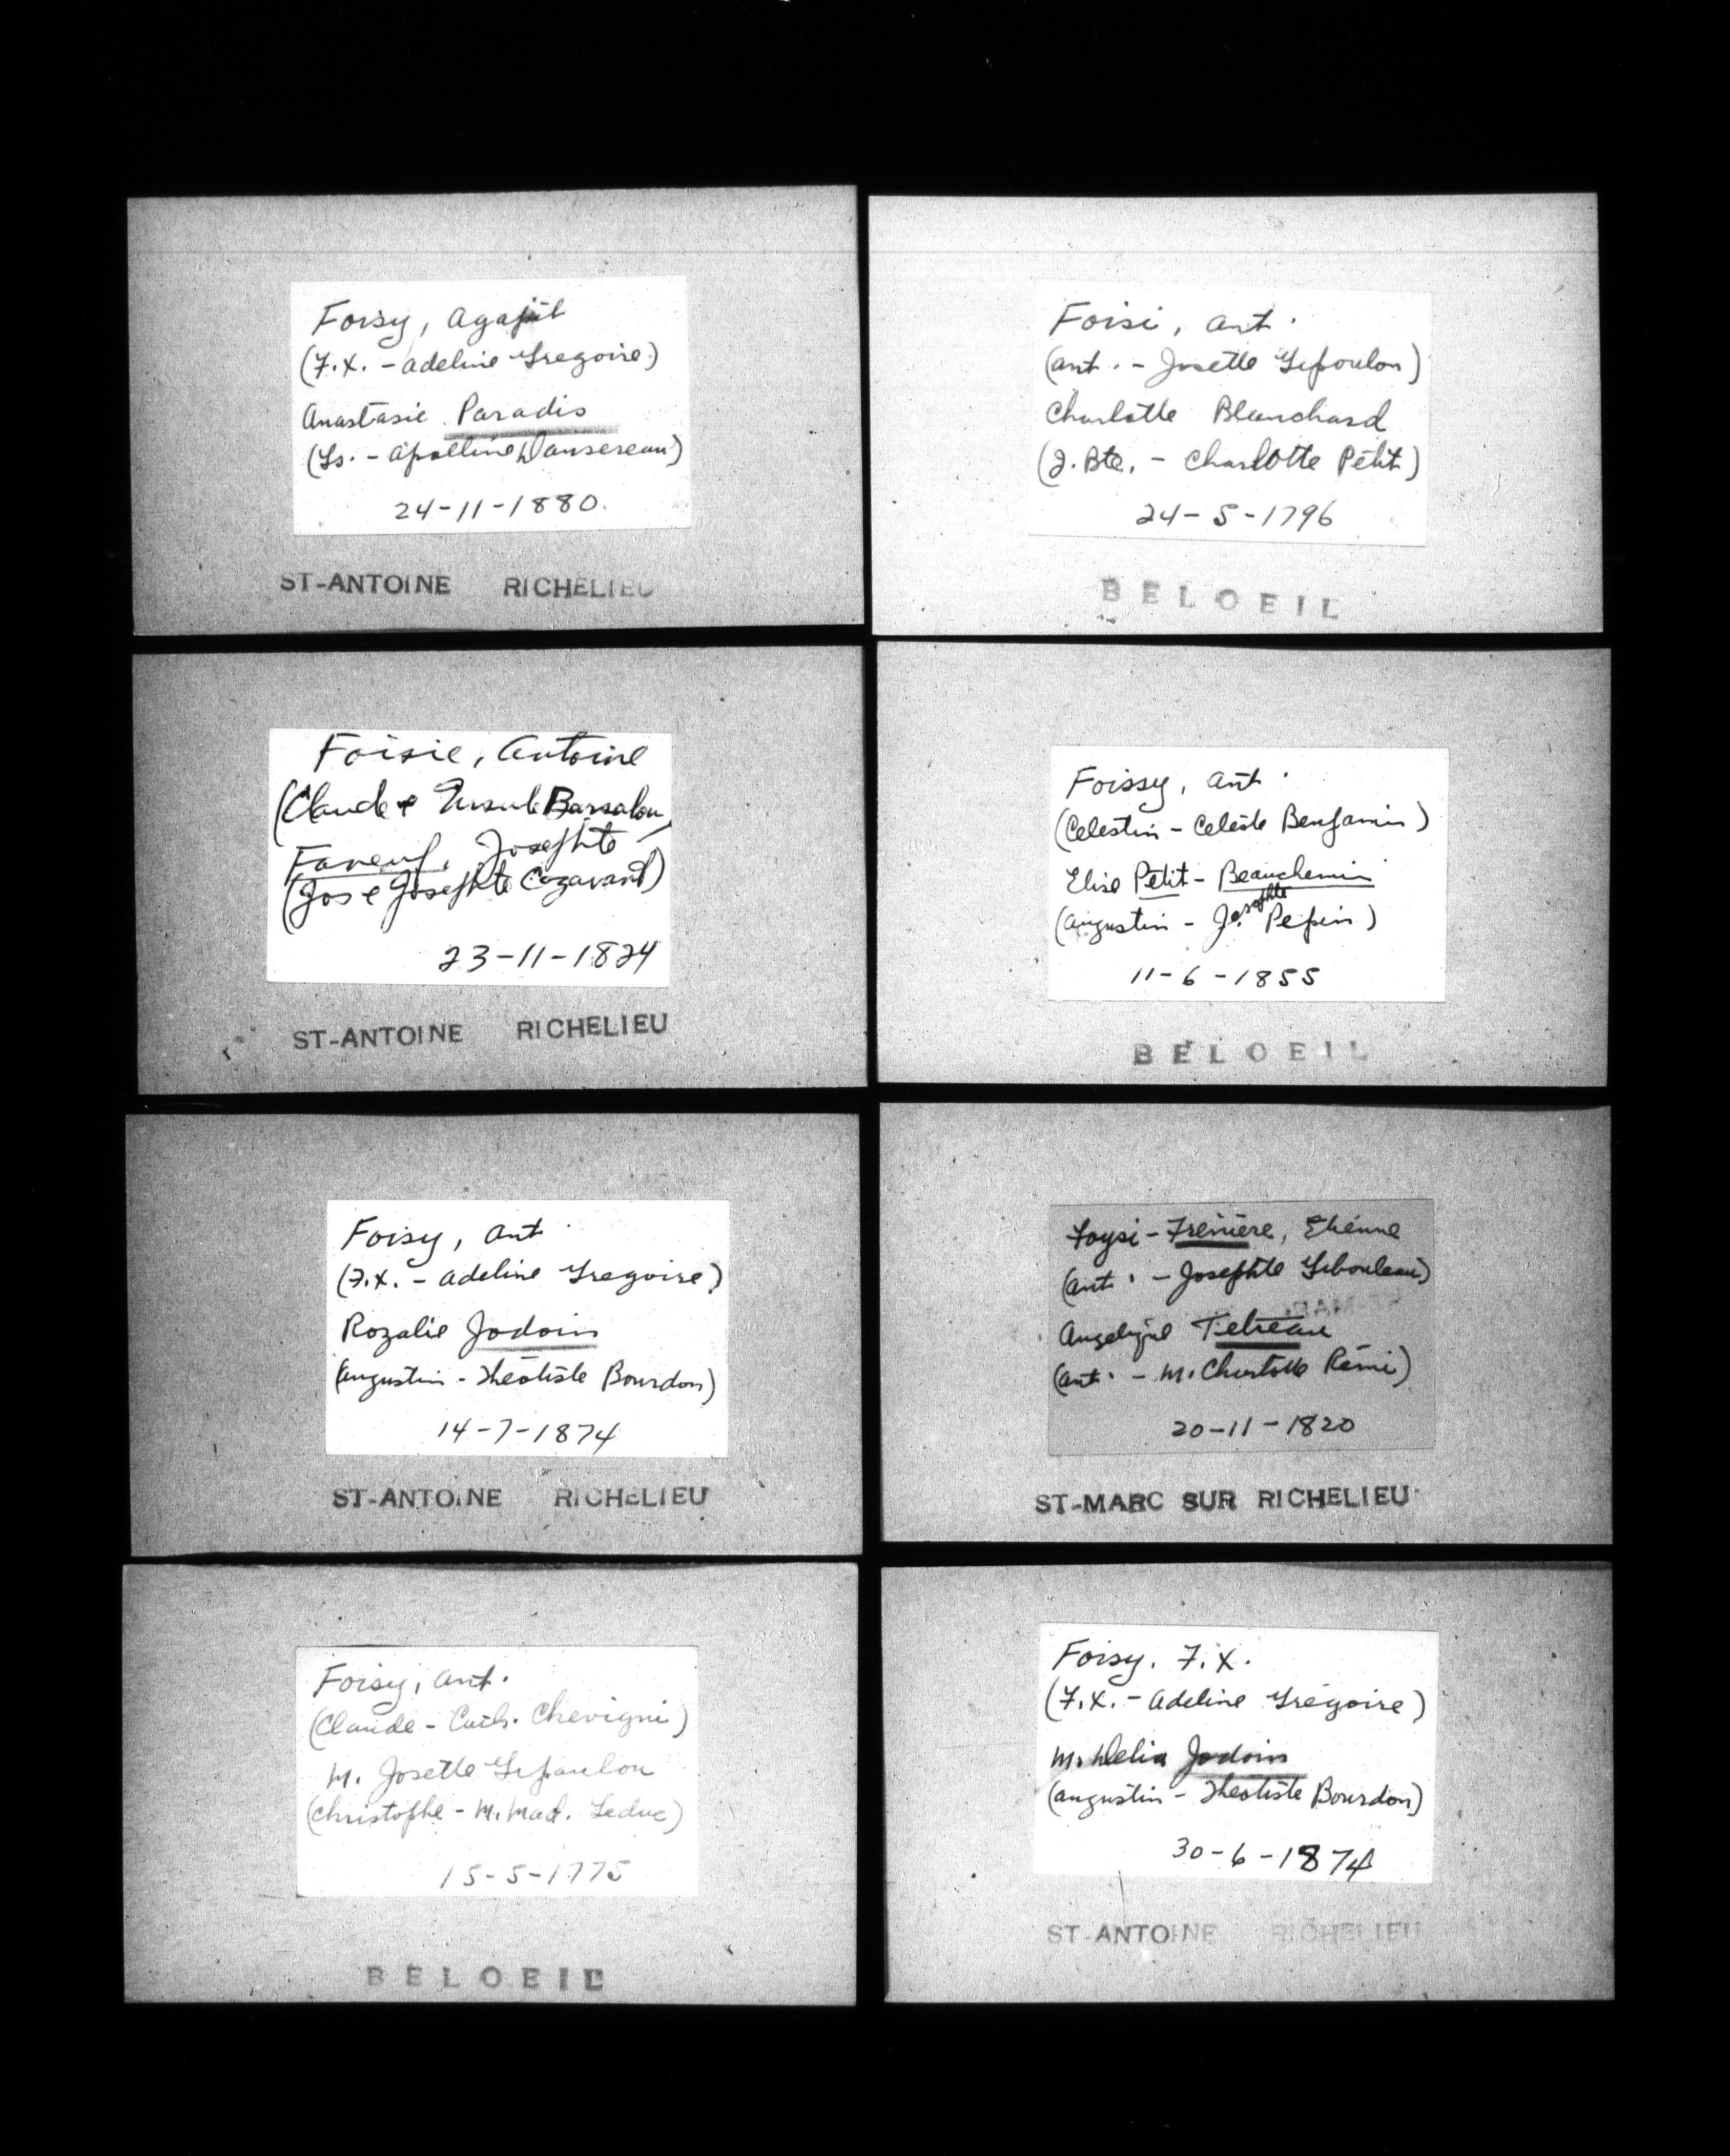 Foisy, Agapit
(F.X. - Adeline Gregoire)
Anastasie Paradis
(Ls. - Apolline Dansereau)
24-11-1880.
ST-ANTOINE RICHELIEU
Foisi, Ant.
(Ant. - Josette Lepoulou)
Charlotte Blanchard
(J. Bte. - Charlotte Petit)
24-5-1796
BELOEIL
Foisie, Antoine
(Claude & Ursule Barsalou)
Faneuf, Josephte
(Jos & Josephte Cazavant)
23-11-1824
ST-ANTOINE RICHELIEU
Foissy, Ant.
(Celestin - Celeste Benjamin)
Elise Petit-Beauchemin
(Augustin - Josephte Pepin)
11-6-1855
BELOEIL
Foisy, Ant.
(F.X. - Adeline Gregoire)
Rozalie Jodoin
(Augustin - Theotiste Bourdon)
14-7-1874
ST-ANTOINE RICHELIEU
Foysi-Frenière, Etienne
(Ant. - Josephte Lebouleau)
Angelique Tetreau
(Ant. - M. Charlotte Rémi)
20-11-1820
ST-MARC SUR RICHELIEU
Foisy, Ant.
(Claude - Cath. Chevigni)
M. Josette Lepoulou
(Christophe - M. Mad. Leduc)
15-5-1775
BELOEIL
Foisy, F.X.
(F.X. - Adeline Gregoire)
M. Delia Jodoin
(Augustin - Theotiste Bourdon)
30-6-1874
ST-ANTOINE RICHELIEU